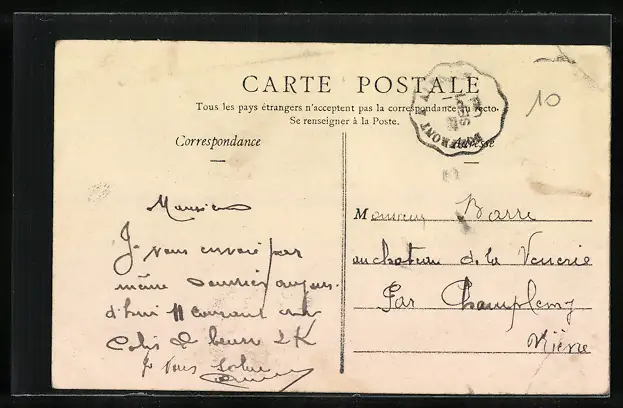 CARTE POSTALE
Tous les pays étrangers n'acceptent pas la correspondance au recto.
Se renseigner à la Poste.
Correspondance
Adresse
10
Monsieur
Je vous envoie par
même courrier aujour-
d'hui 11 courant un
Colis de beurre 2K
Je vous salue
Monsieur Barre
au chateau de la Venerie
Par Champlemy
Nièvre